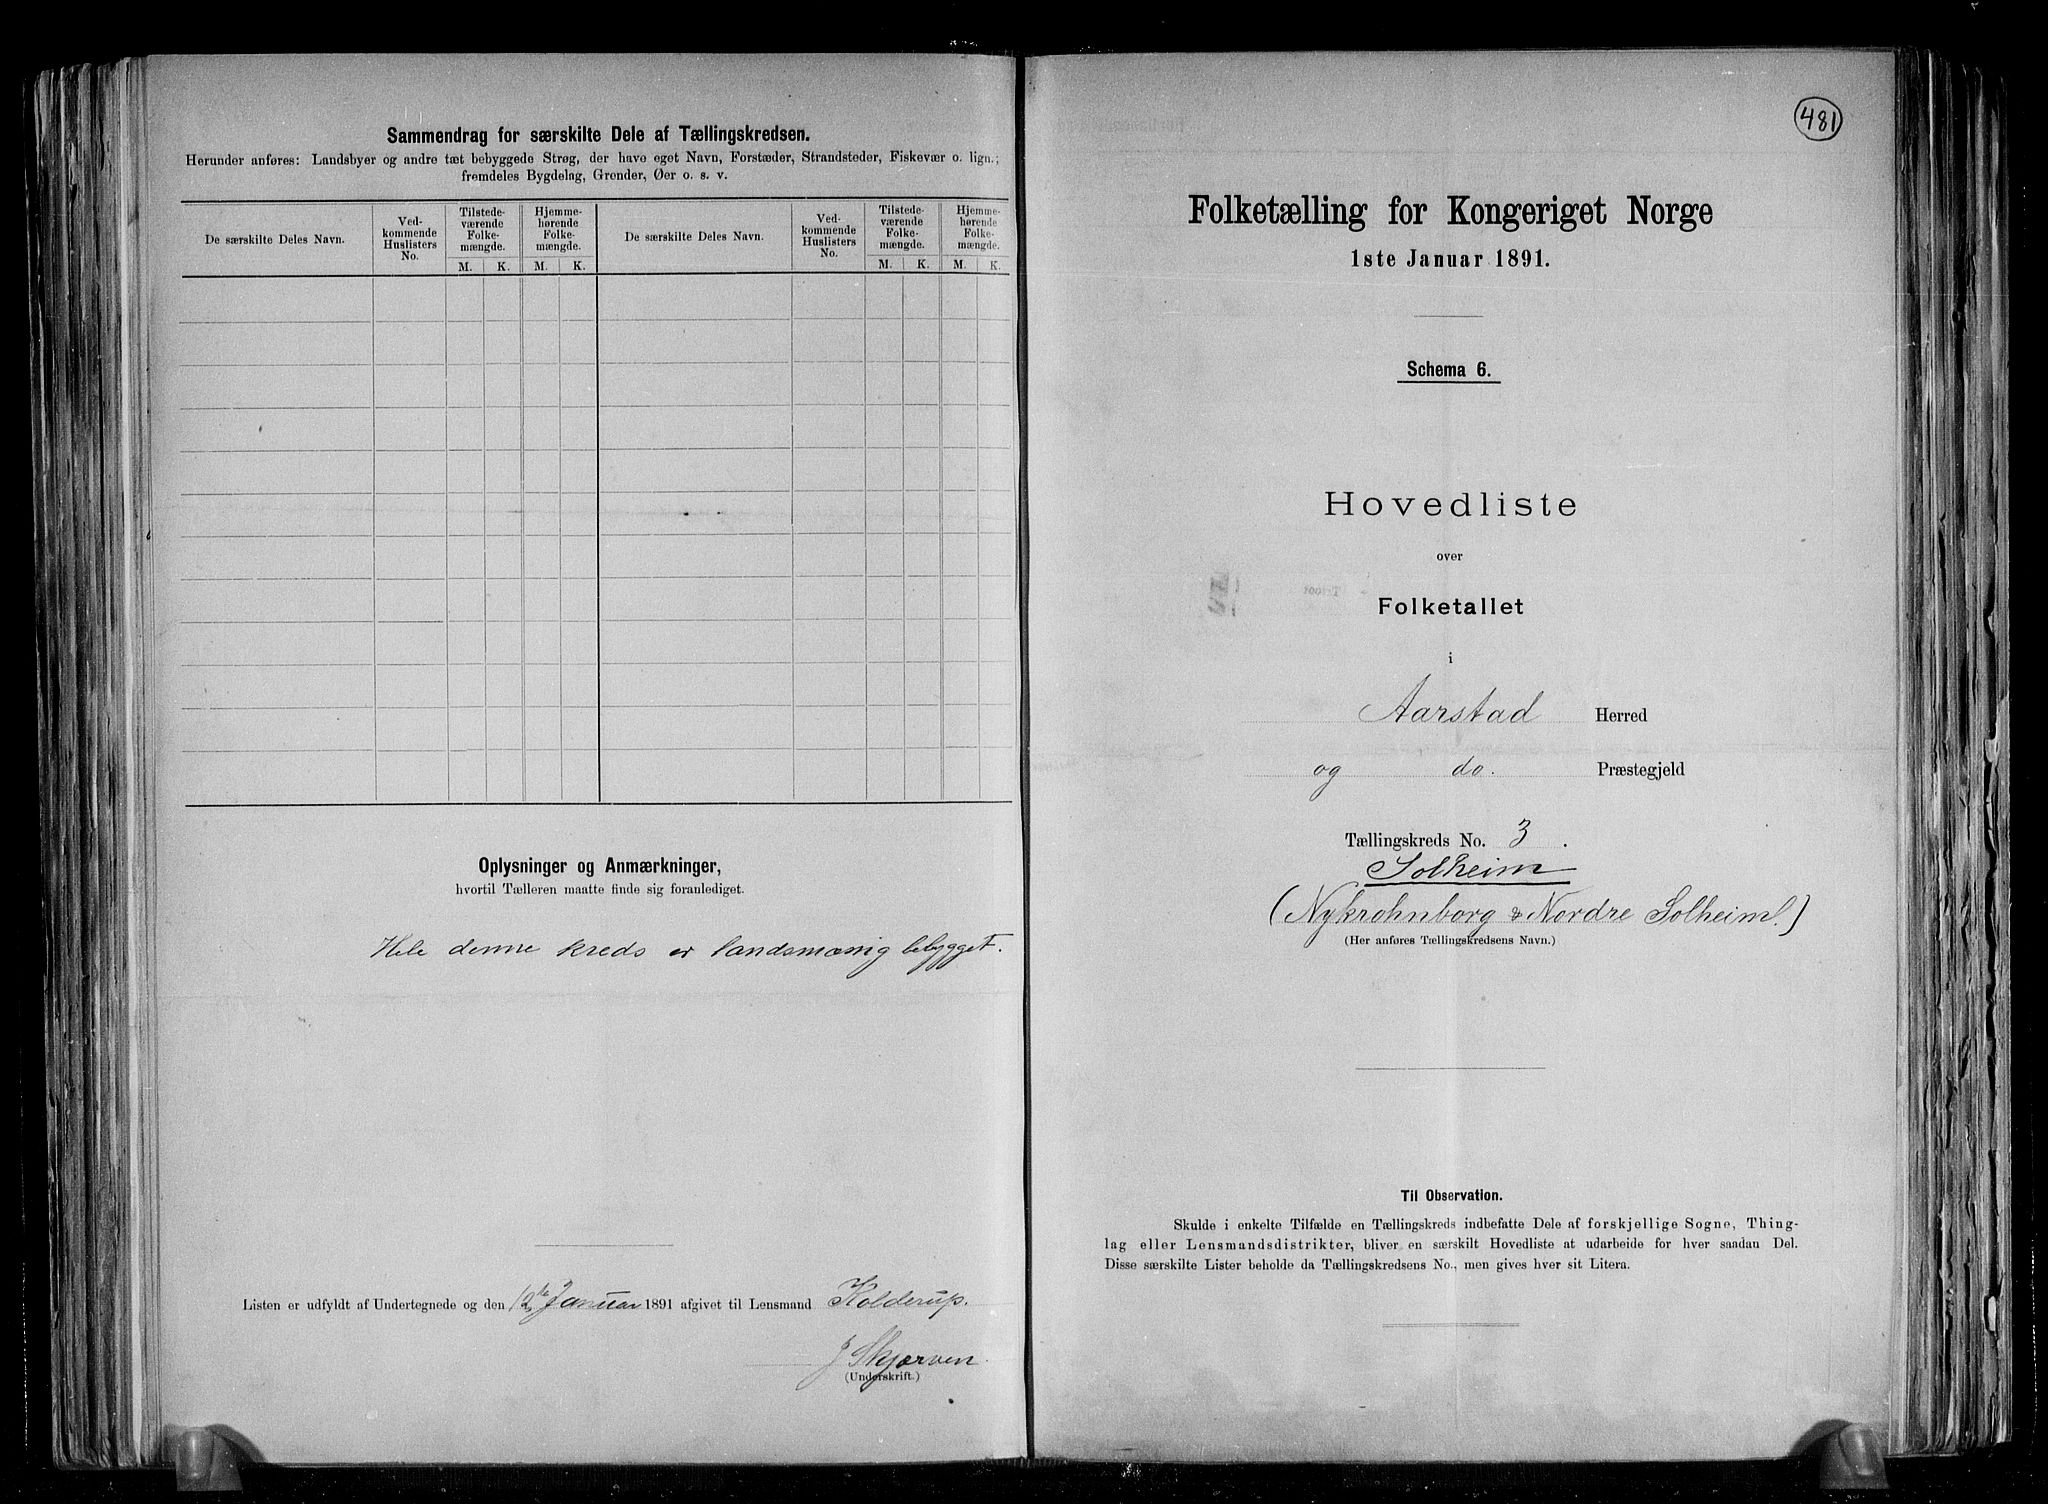 Sammendrag for særskilte Dele af Tællingskredsen.
Herunder anføres: Landsbyer og andre tæt bebyggede Strøg, der have eget Navn, Forstæder, Strandsteder, Fiskevær o. lign.;
fremdeles Bygdelag, Grender, Øer o. s. v.
De særskilte Deles Navn.
Ved-
kommende
Huslisters
No.
Tilstede-
værende
Folke-
mængde.
M. K.
Hjemme-
hørende
Folke-
mængde.
M. K.
De særskilte Deles Navn.
Ved-
kommende
Huslisters
No.
Tilstede-
værende
Folke-
mængde.
M. K.
Hjemme-
hørende
Folke-
mængde.
M. K.
Oplysninger og Anmærkninger,
hvortil Tælleren maatte finde sig foranlediget.
Hele denne kreds er landsmæssig bebygget.
Listen er udfyldt af Undertegnede og den 12te Januar 1891 afgivet til Lensmand Kolderup.
J Skjerven
(Underskrift.)
481
Folketælling for Kongeriget Norge
1ste Januar 1891.
Schema 6.
Hovedliste
over
Folketallet
i
Aarstad Herred
og do. Præstegjeld
Tællingskreds No. 3.
Solheim
(Nykrohnborg & Nordre Solheim.)
(Her anføres Tællingskredsens Navn.)
Til Observation.
Skulde i enkelte Tilfælde en Tællingskreds indbefatte Dele af forskjellige Sogne, Thing-
lag eller Lensmandsdistrikter, bliver en særskilt Hovedliste at udarbeide for hver saadan Del.
Disse særskilte Lister beholde da Tællingskredsens No., men gives hver sit Litera.